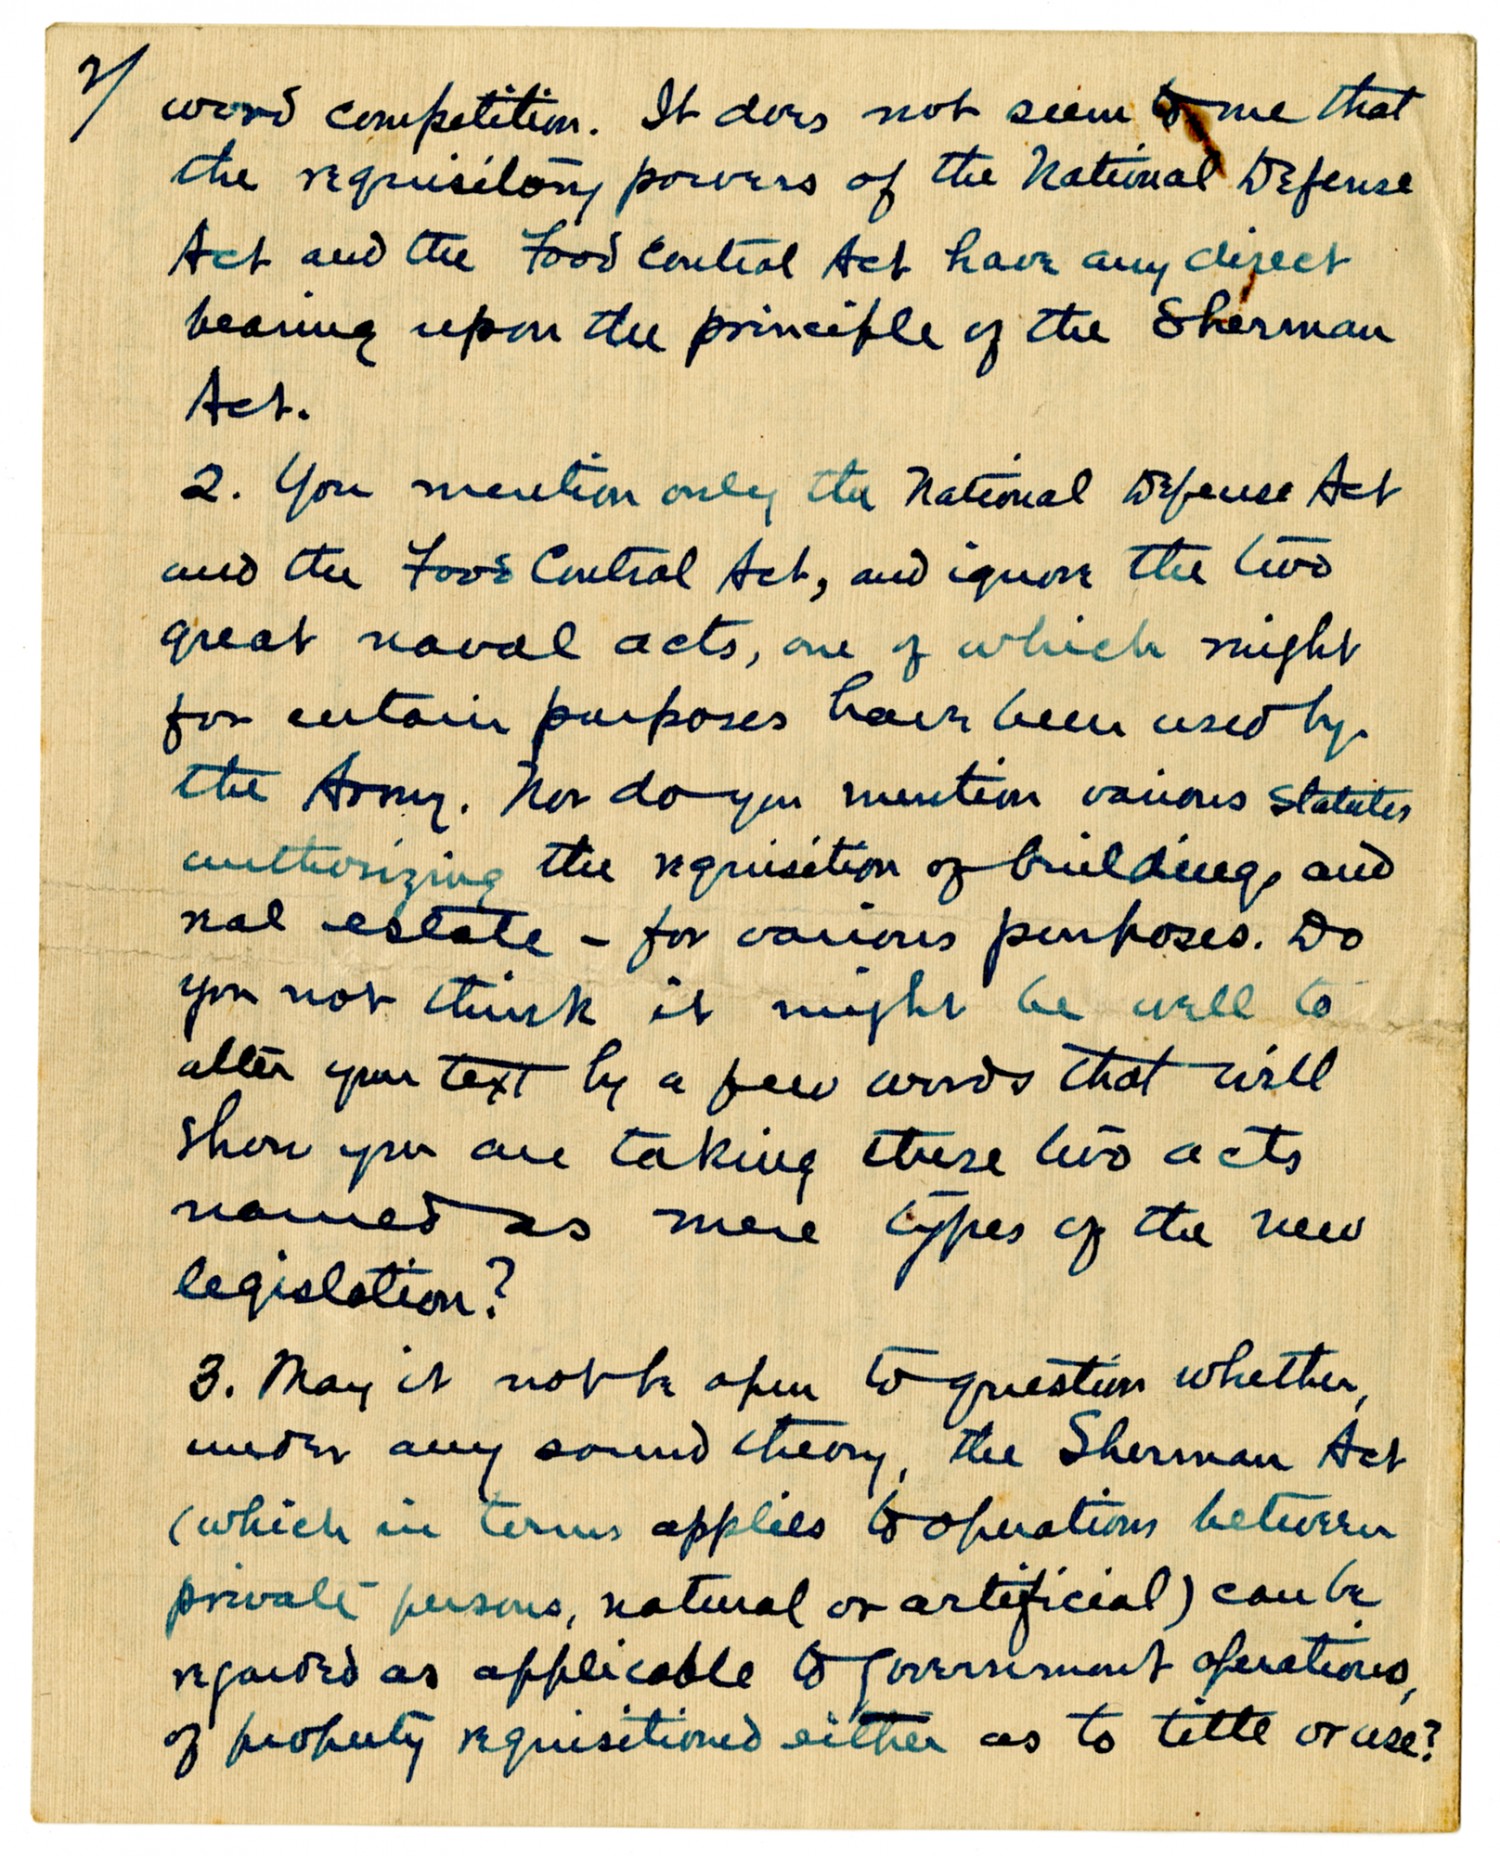 2/
word competition. It does not seem to me that
the requisitory powers of the National Defense
Act and the Food Control Act have any direct
bearing upon the principle of the Sherman
Act.
2. You mention only the National Defense Act
and the Food Control Act, and ignore the two
great naval acts, one of which might
for certain purposes have been used by
the Army. Nor do you mention various statutes
authorizing the requisition of buildings and
real estate - for various purposes. Do
you not think it might be well to
alter your text by a few words that will
show you are taking these two acts
named as mere types of the new
legislation?
3. May it not be open to question whether,
under any sound theory, the Sherman Act
(which in terms applies to operations between
private persons, natural or artificial) can be
regarded as applicable to Government operations,
of property requisitioned either as to title or use?